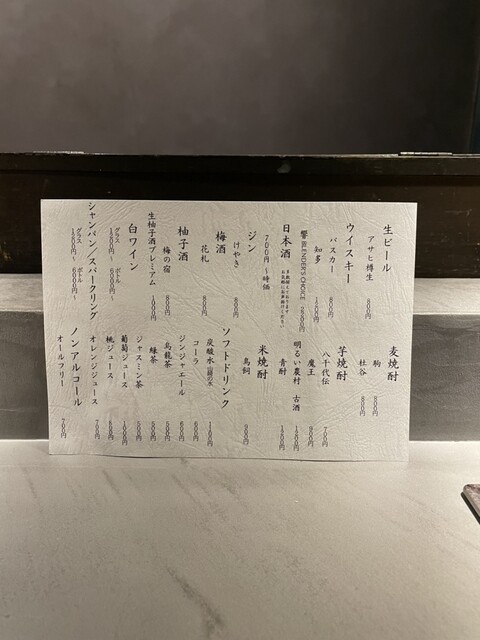 生ビール
アサヒ樽生 800円
ウイスキー
バスカー 800円
知多
響 BLENDER'S CHOICE
日本酒
多数揃えております
お気軽にお声掛けください
700円〜時価
ジン
けやき 800円
梅酒
花札 800円
柚子酒
梅の宿 800円
生柚子酒プレミアム
白ワイン
グラス ボトル
1500円〜 6000円〜
シャンパン/スパークリング
グラス ボトル
1500円〜 6000円〜
麦焼酎
駒 800円
杜谷 800円
芋焼酎
八千代伝 700円
魔王 900円
明るい農村 古酒
青酎
米焼酎
鳥飼 900円
ソフトドリンク
炭酸水
コーラ
ジンジャエール
烏龍茶 500円
緑茶 500円
ジャスミン茶 500円
葡萄ジュース 1000円
桃ジュース
オレンジジュース 700円
ノンアルコール
オールフリー 700円